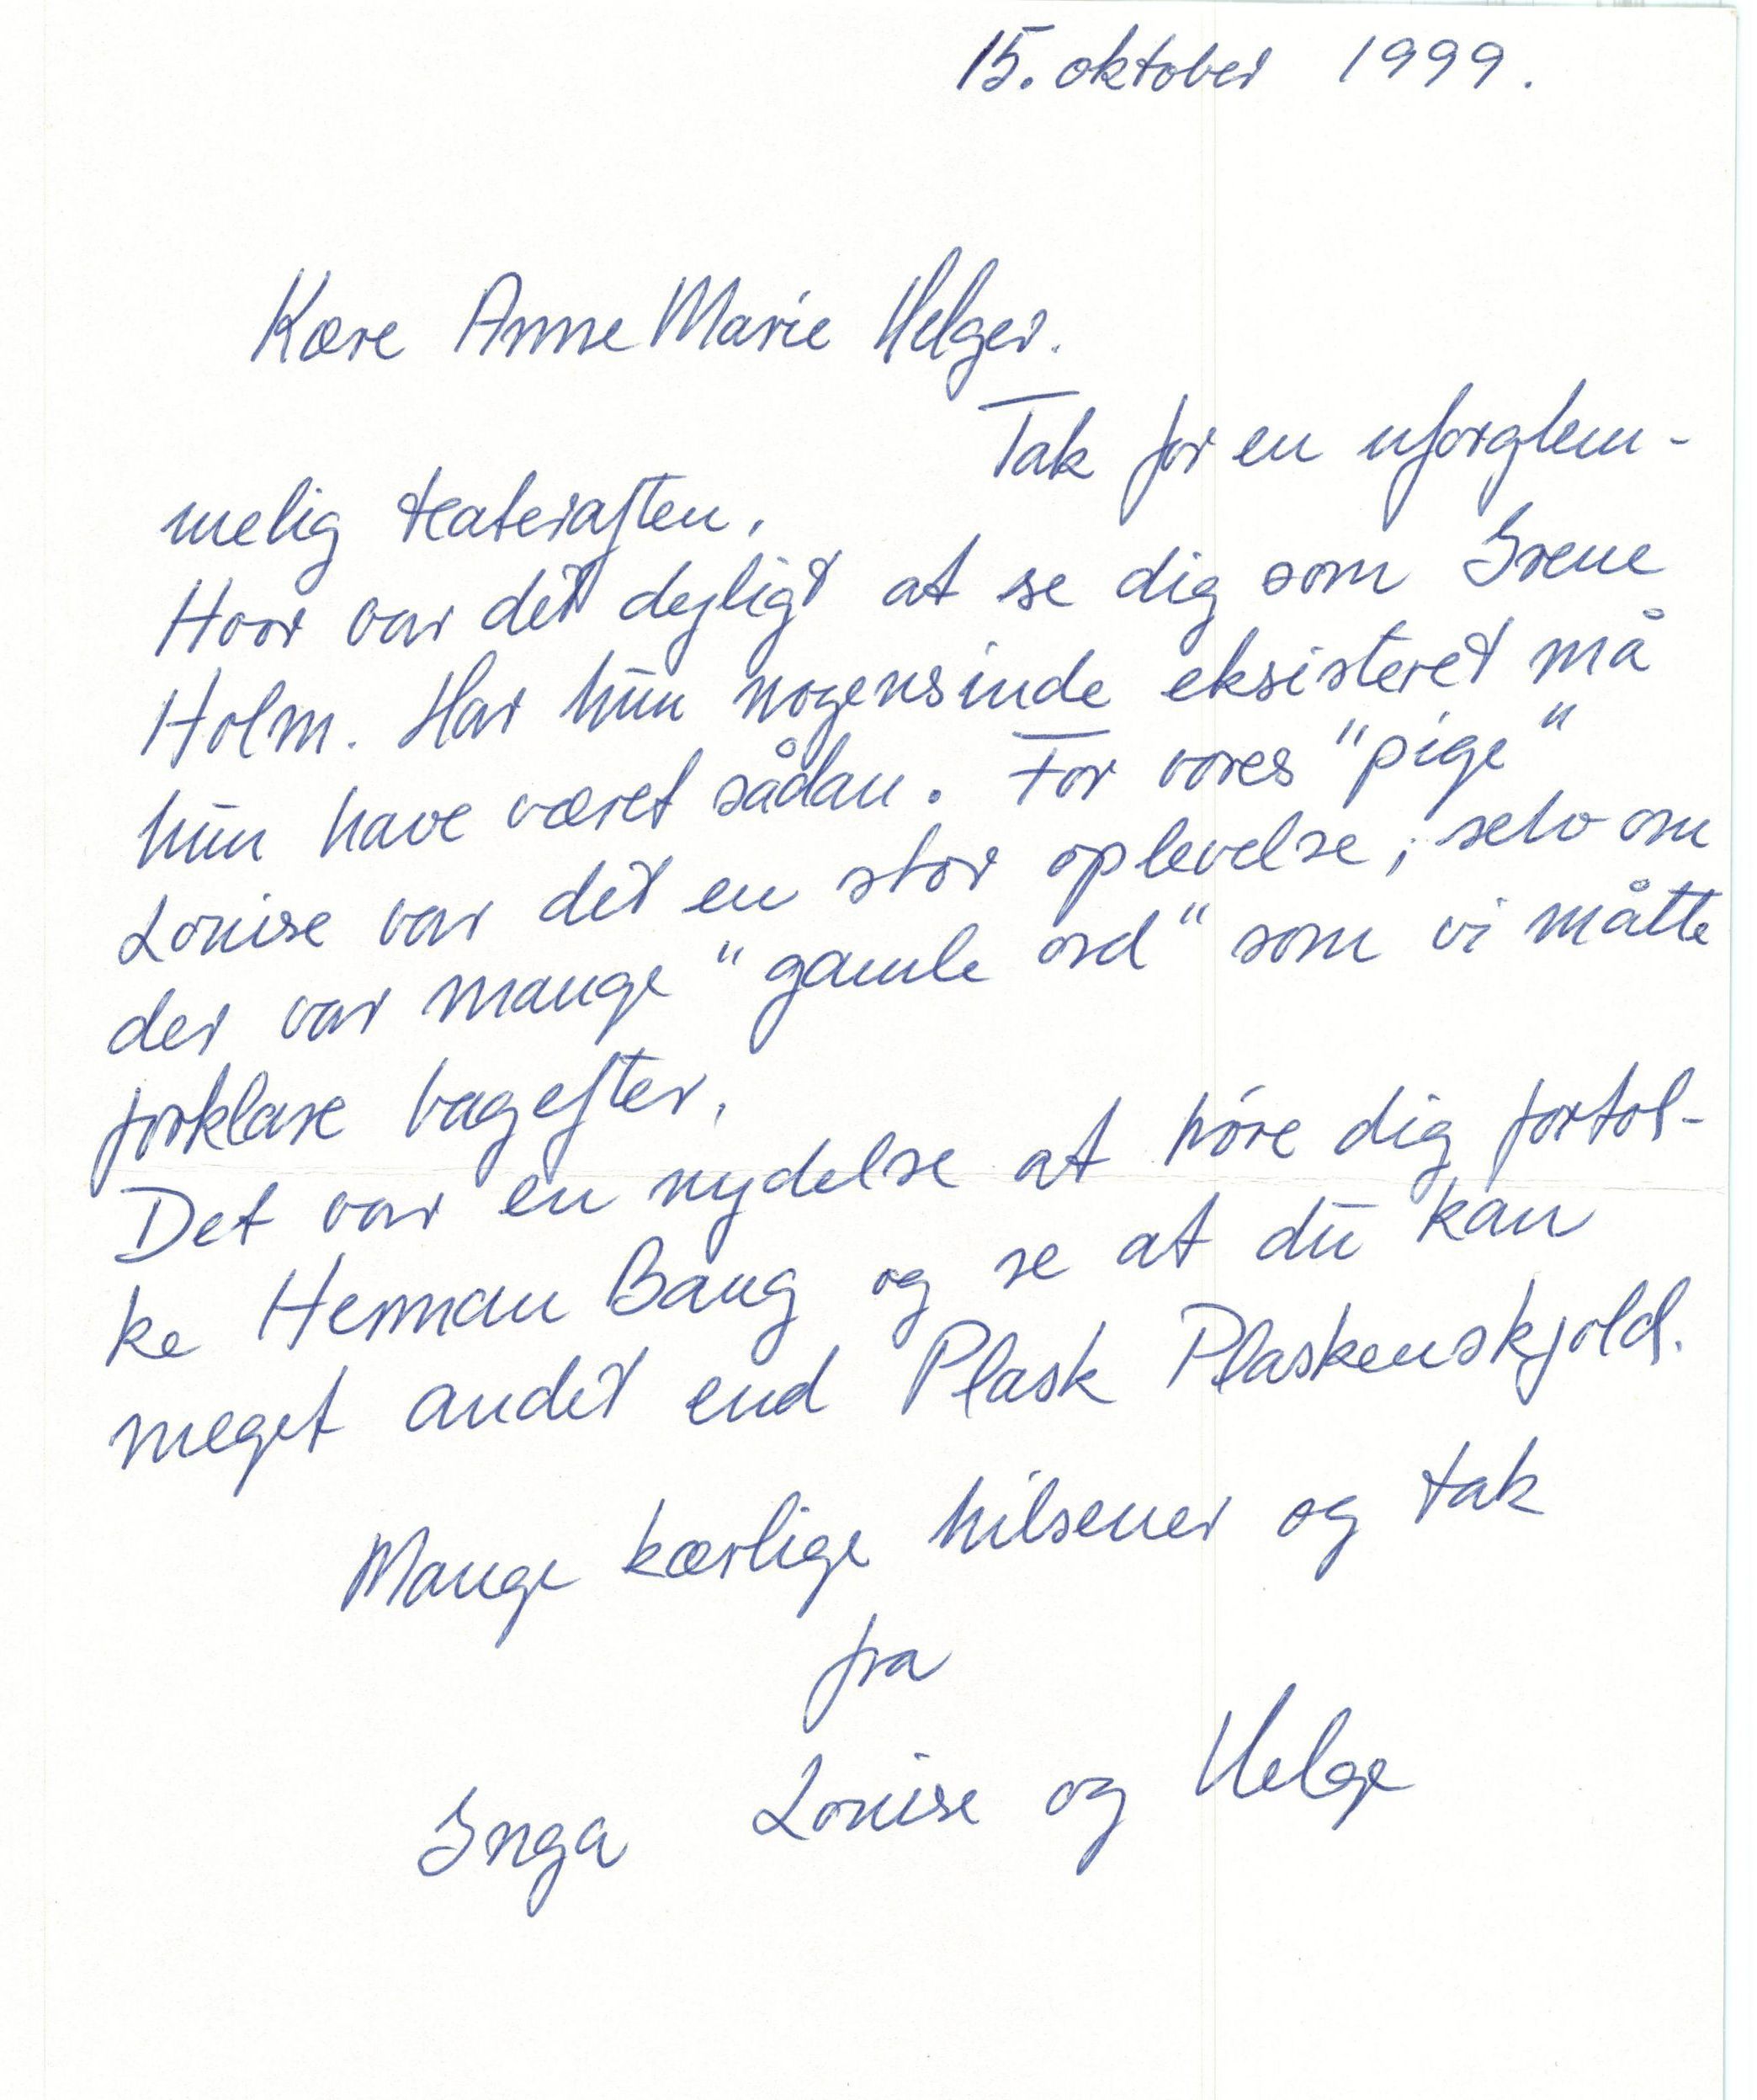 15. oktober 1999.
Kære Anne Marie Helger.
Tak for en uforglem-
melig teateraften.
Hvor var det dejligt at se dig som Irene
Holm. Har hun nogensinde eksisteret må
hun have været sådan. For vores "pige"
Louise var det en stor oplevelse, selv om
der var mange "gamle ord" som vi måtte
forklare bagefter.
Det var en nydelse at høre dig fortol-
ke Herman Bang og se at du kan
meget andet end Plask Plaskenskjold.
Mange kærlige hilsener og tak
fra
Inga Louise og Helge